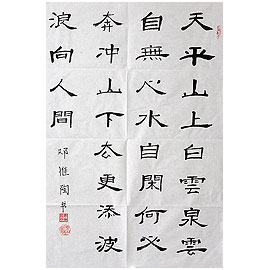 天平山上白雲泉雲
自無心水自閑何必
奔冲山下去更添波
浪向人間